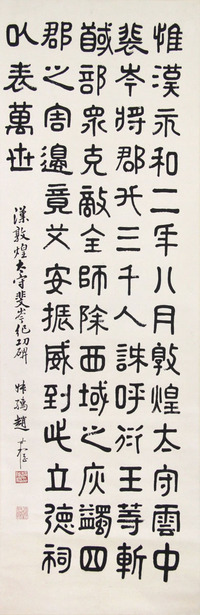 惟漢永和二年八月敦煌太守雲中
裴岑將郡兵三千人誅呼衍王等斬
馘部眾克敵全師除西域之灾蠲四
郡之害邊竟艾安振威到此立德祠
以表萬世
漢敦煌太守裴岑紀功碑 叔孺趙時棡